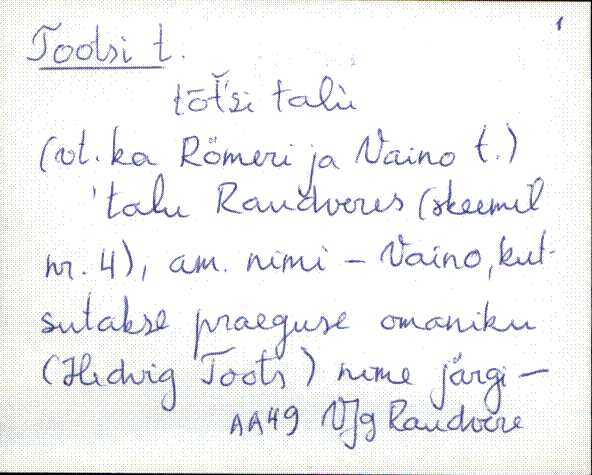 1
Tootsi t.
tōt̆'si talù
(vt. ka Römeri ja Vaino t.)
'talu Randveres (skeemil
nr. 4), am. nimi – Vaino, kut-
sutakse praeguse omaniku
(Hedvig Toots) nime järgi –
AA49 VJg Randvere